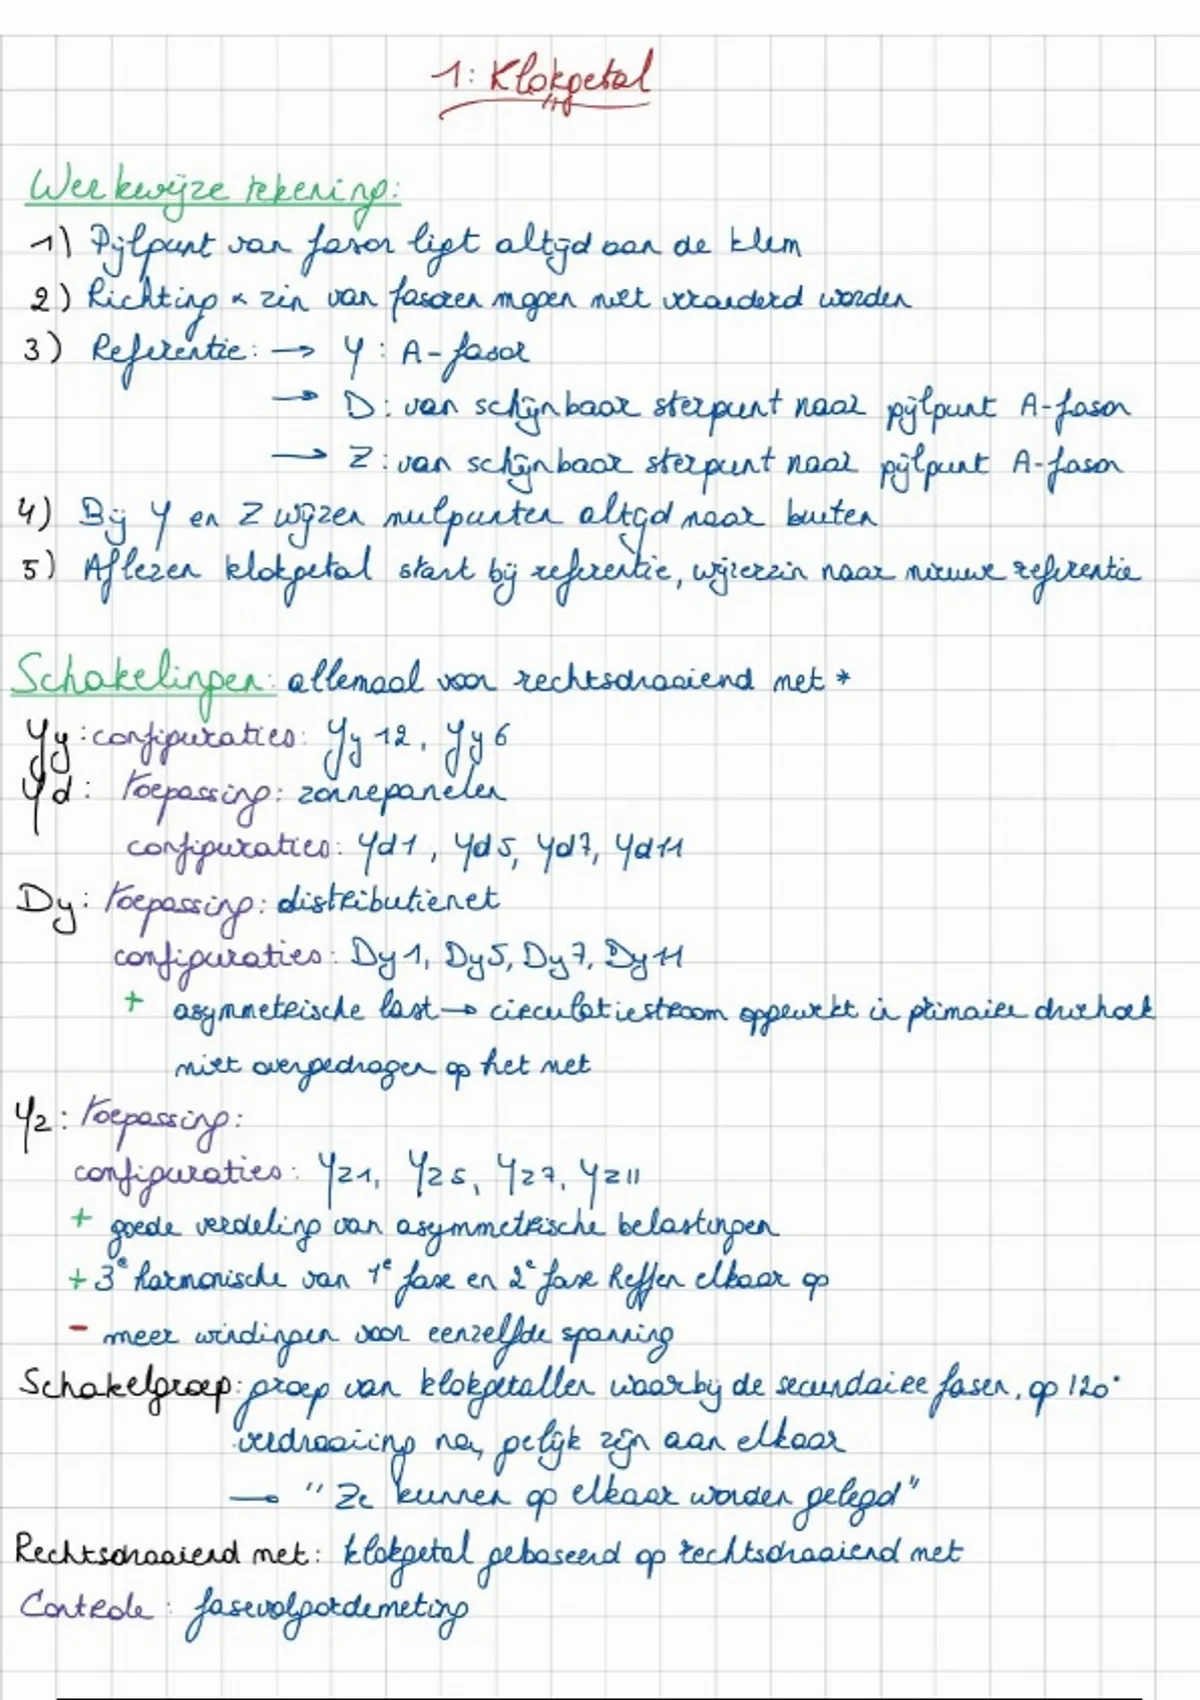 1: Klokgetal
Werkwijze tekening:
1) Pijlpunt van fasor ligt altijd aan de klem
2) Richting & zin van fasoren mogen niet veranderd worden
3) Referentie: → Y: A-fasor
→ D: van schijnbaar sterpunt naar pijlpunt A-fasor
→ Z: van schijnbaar sterpunt naar pijlpunt A-fasor
4) Bij Y en Z wijzen nulpunten altijd naar buiten
5) Aflezen klokgetal start bij referentie, wijzerzin naar nieuwe referentie
Schakelingen: allemaal voor rechtsdraaiend net *
Yy: configuraties: Yy12, Yy6
Yd: toepassing: zonnepanelen
configuraties: Yd1, Yd5, Yd7, Yd11
Dy: toepassing: distributienet
configuraties: Dy1, Dy5, Dy7, Dy11
+ asymmetrische last → circulatiestroom opgewekt in primaire driehoek
niet overgedragen op het net
Yz: toepassing:
configuraties: Yz1, Yz5, Yz7, Yz11
+ goede verdeling van asymmetrische belastingen
+ 3e harmonische van 1e fase en 2e fase heffen elkaar op
- meer windingen voor eenzelfde spanning
Schakelgroep: groep van klokgetallen waarbij de secundaire fasen, op 120°
verdraaiing na, gelijk zijn aan elkaar
→ "Ze kunnen op elkaar worden gelegd"
Rechtsdraaiend net: klokgetal gebaseerd op rechtsdraaiend net
Controle: fasevolgordemeting